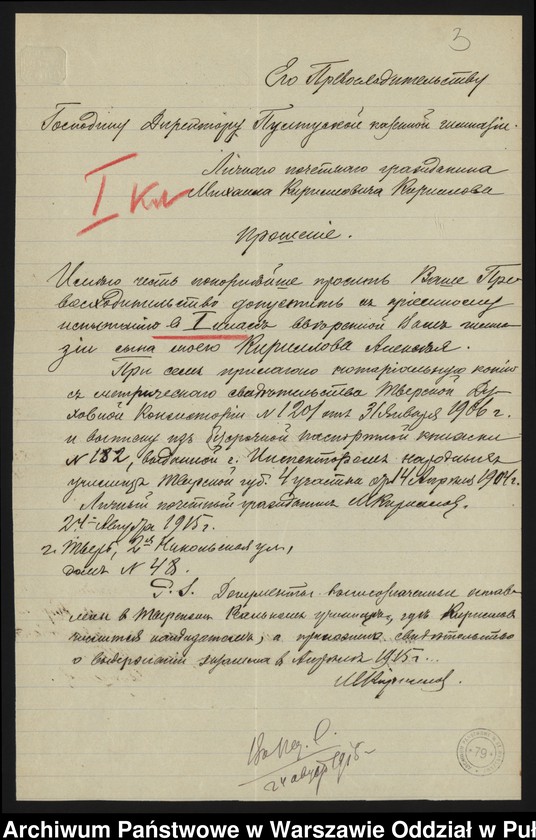 3
Его Превосходительству
Господину Директору Пултуской казенной гимназіи.
I кл
Личнаго почетнаго гражданина
Михаила Кирилловича Кириллова
Прошеніе.
Имѣю честь покорнѣйше просить Ваше Пре-
восходительство допустить къ пріемному
испытанію въ I классъ ввѣренной Вамъ гимна-
зіи сына моего Кириллова Алексѣя.
При семъ прилагаю нотаріальную копію
съ метрическаго свидѣтельства Тверской Ду-
ховной Консисторіи N 1201 отъ 31 Января 1906 г.
и выписку изъ безсрочной паспортной книжки
N 182, выданной г. Инспекторомъ народныхъ
училищъ Тверской губ. 4 участка отъ 14 Апрѣля 1904 г.
Личный почетный гражданинъ М. Кирилловъ.
24 Августа 1915 г.
г. Тверь, 2ая Никольская ул.,
домъ N 48.
P. S. Документы вышеозначенные остав-
лены в Тверскомъ Реальномъ училищѣ, гдѣ Кирилловъ
числится кандидатомъ, а приложить свидѣтельство
о выдержаніи экзамена в Апрѣлѣ 1915 г.
М. Кирилловъ.
24 август 1915
79
Archiwum Państwowe w Warszawie Oddział w Puł